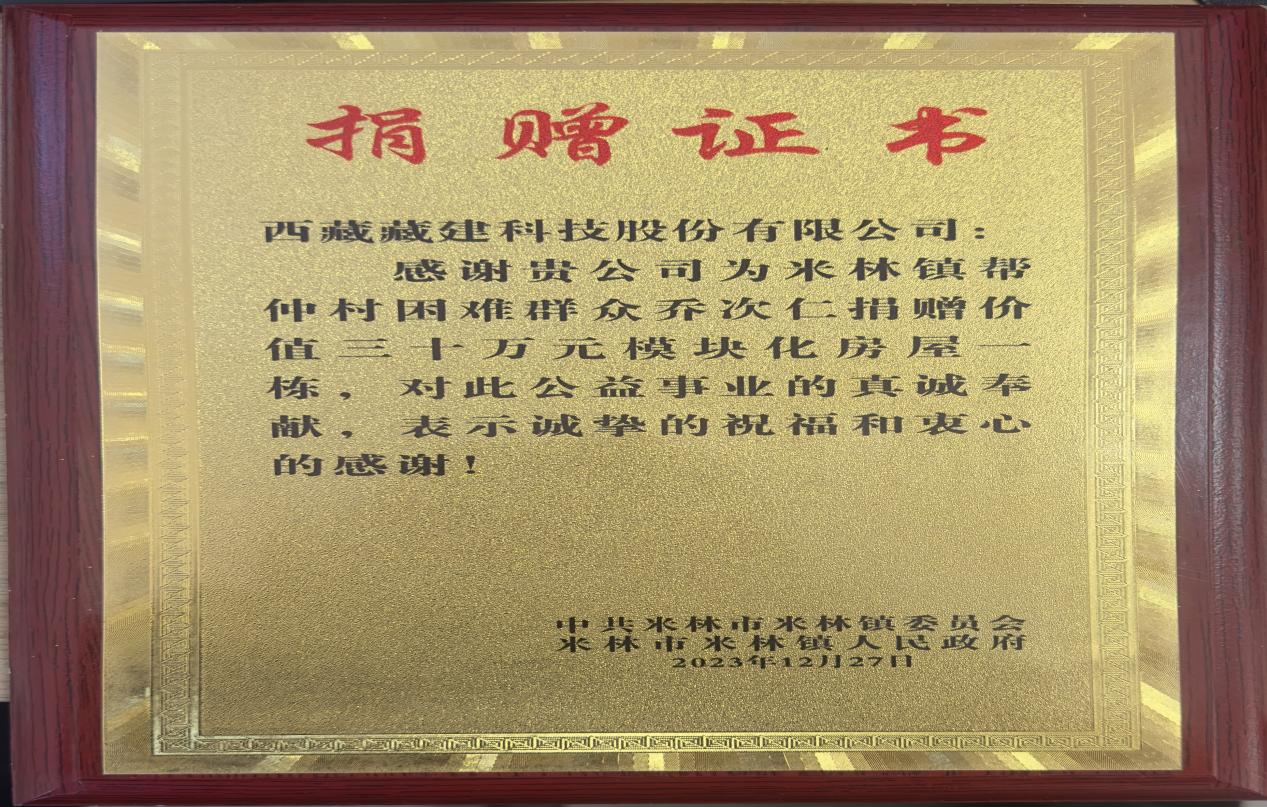 捐赠证书
西藏藏建科技股份有限公司：
感谢贵公司为米林镇帮
仲村困难群众乔次仁捐赠价
值三十万元模块化房屋一
栋，对此公益事业的真诚奉
献，表示诚挚的祝福和衷心
的感谢！
中共米林市米林镇委员会
米林市米林镇人民政府
2023年12月27日